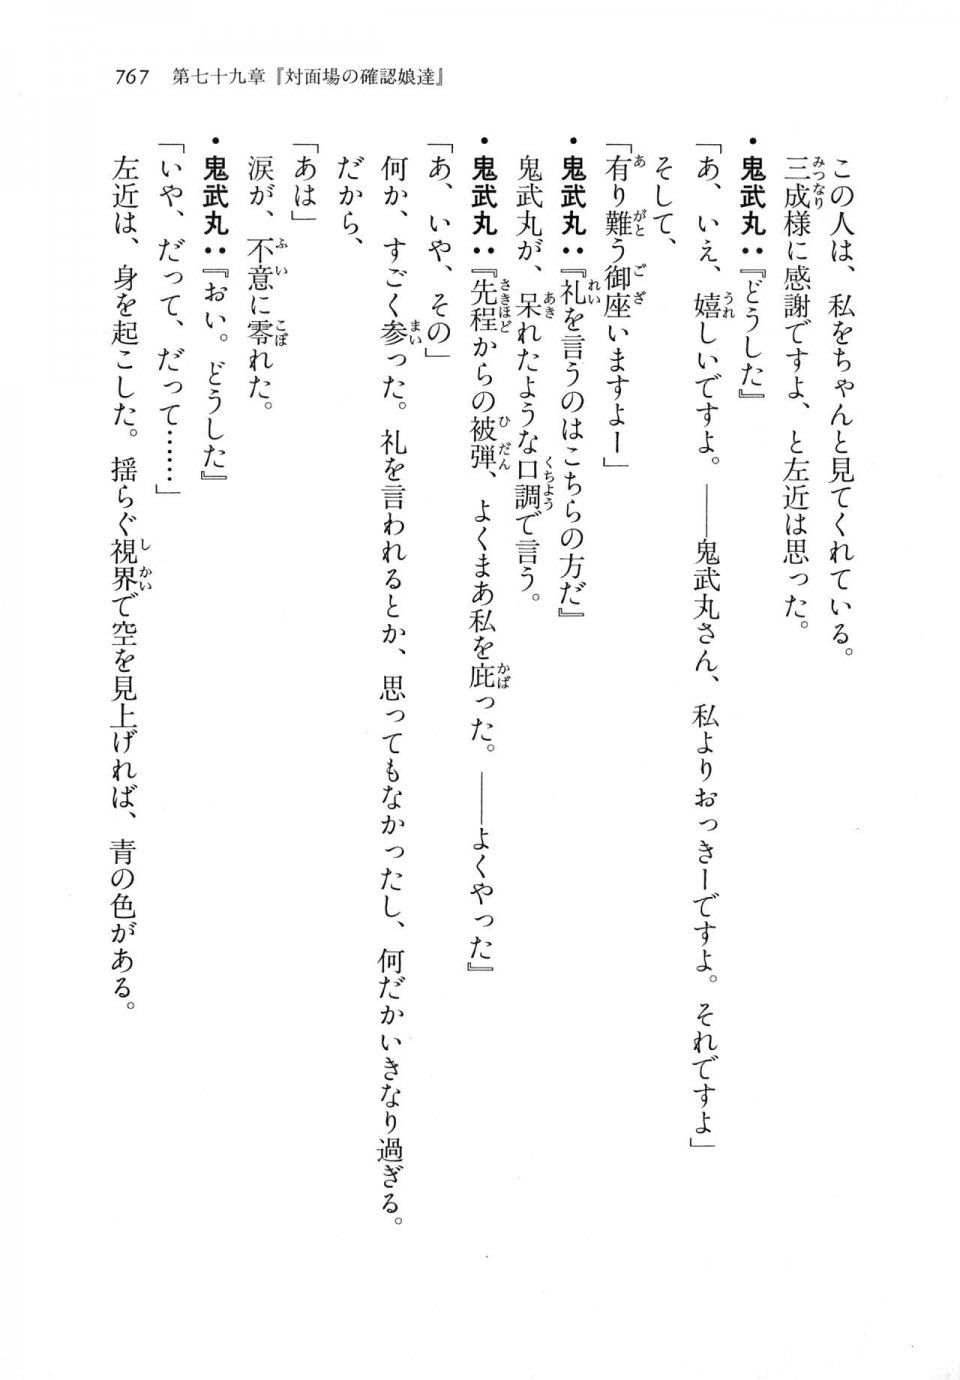 767 第七十九章『対面場の確認娘達』
この人は、私をちゃんと見てくれている。
三成様に感謝ですよ、と左近は思った。
・鬼武丸：『どうした』
「あ、いえ、嬉しいですよ。――鬼武丸さん、私よりおっきーですよ。それですよ」
そして、
「有り難う御座いますよー」
・鬼武丸：『礼を言うのはこちらの方だ』
鬼武丸が、呆れたような口調で言う。
・鬼武丸：『先程からの被弾、よくまあ私を庇った。――よくやった』
「あ、いや、その」
何か、すごく参った。礼を言われるとか、思ってもなかったし、何だかいきなり過ぎる。
だから、
「あは」
涙が、不意に零れた。
・鬼武丸：『おい。どうした』
「いや、だって、だって……」
左近は、身を起こした。揺らぐ視界で空を見上げれば、青の色がある。